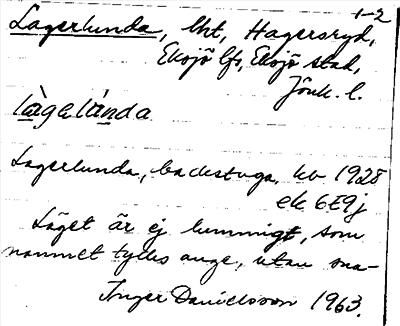 1-2
Lagerlunda, bht, Hagersryd,
Eksjö lfs, Eksjö stad,
Jönk. l.
làgelúnda
Lagerlunda, backstuga. kv 1928
ek 6E9j
Läget är ej lummigt, som
namnet tydes ange, utan sna-
Inger Danielsson 1963.